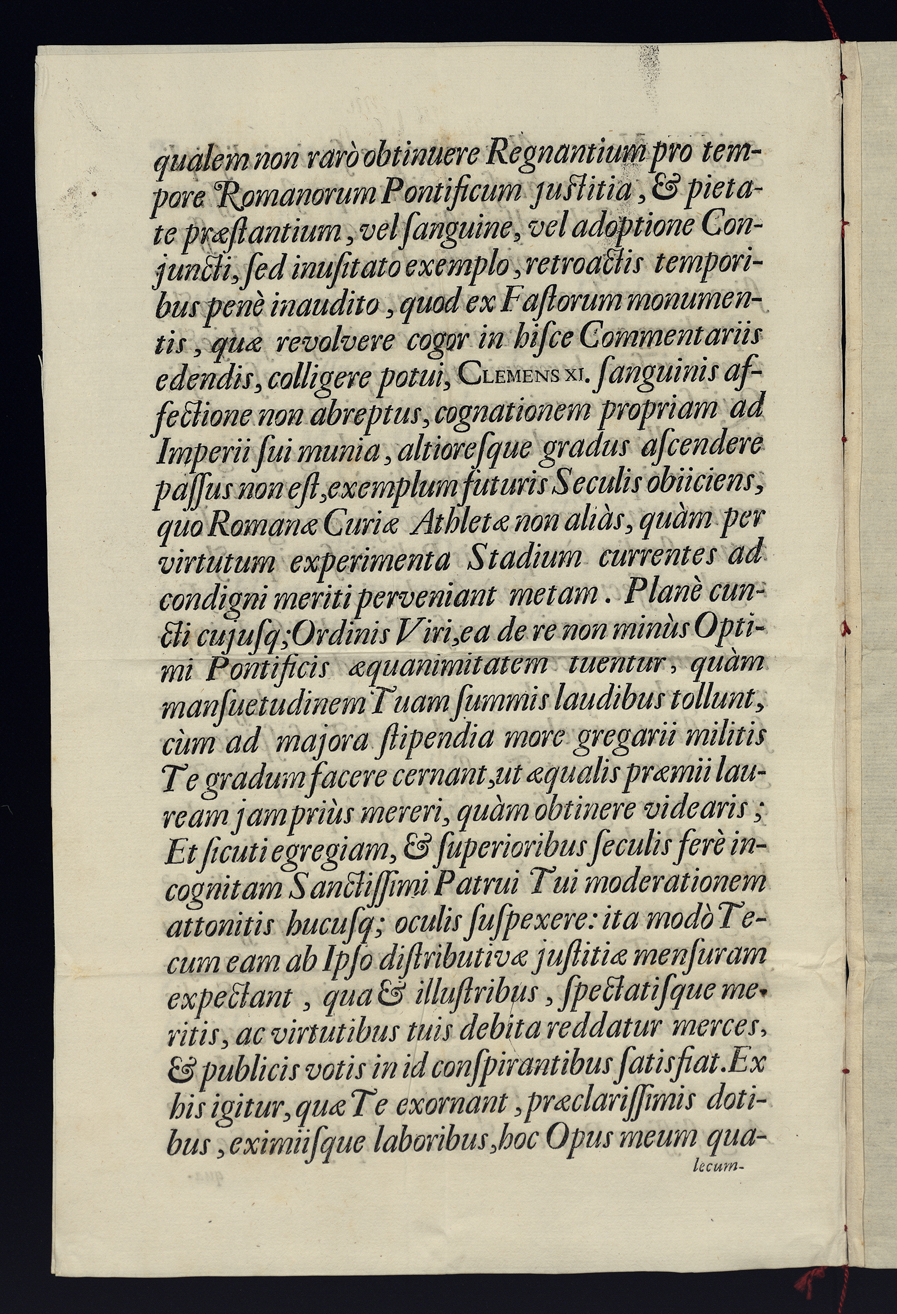 qualem non rarò obtinuere Regnantium pro tem-
pore Romanorum Pontificum justitia, & pieta-
te præſtantium, vel ſanguine, vel adoptione Con-
juncti, ſed inuſitato exemplo, retroactis tempori-
bus penè inaudito, quod ex Faſtorum monumen-
tis, quæ revolvere cogor in hiſce Commentariis
edendis, colligere potui, CLEMENS XI. ſanguinis af-
fectione non abreptus, cognationem propriam ad
Imperii ſui munia, altioreſque gradus aſcendere
paſſus non eſt, exemplum futuris Seculis obiiciens,
quo Romanæ Curiæ Athletæ non aliàs, quàm per
virtutum experimenta Stadium currentes ad
condigni meriti perveniant metam. Planè cun-
cti cujuſq; Ordinis Viri, ea de re non minùs Opti-
mi Pontificis æquanimitatem tuentur, quàm
manſuetudinem Tuam ſummis laudibus tollunt,
cùm ad majora ſtipendia more gregarii militis
Te gradum facere cernant, ut æqualis præmii lau-
ream jam priùs mereri, quàm obtinere videaris;
Et ſicuti egregiam, & ſuperioribus ſeculis ferè in-
cognitam Sanctiſſimi Patrui Tui moderationem
attonitis hucuſq; oculis ſuſpexere: ita modò Te-
cum eam ab Ipſo diſtributivæ juſtitiæ menſuram
expectant, qua & illuſtribus, ſpectatiſque me-
ritis, ac virtutibus tuis debita reddatur merces,
& publicis votis in id conſpirantibus ſatisfiat. Ex
his igitur, quæ Te exornant, præclariſſimis doti-
bus, eximiiſque laboribus, hoc Opus meum qua-
lecum-